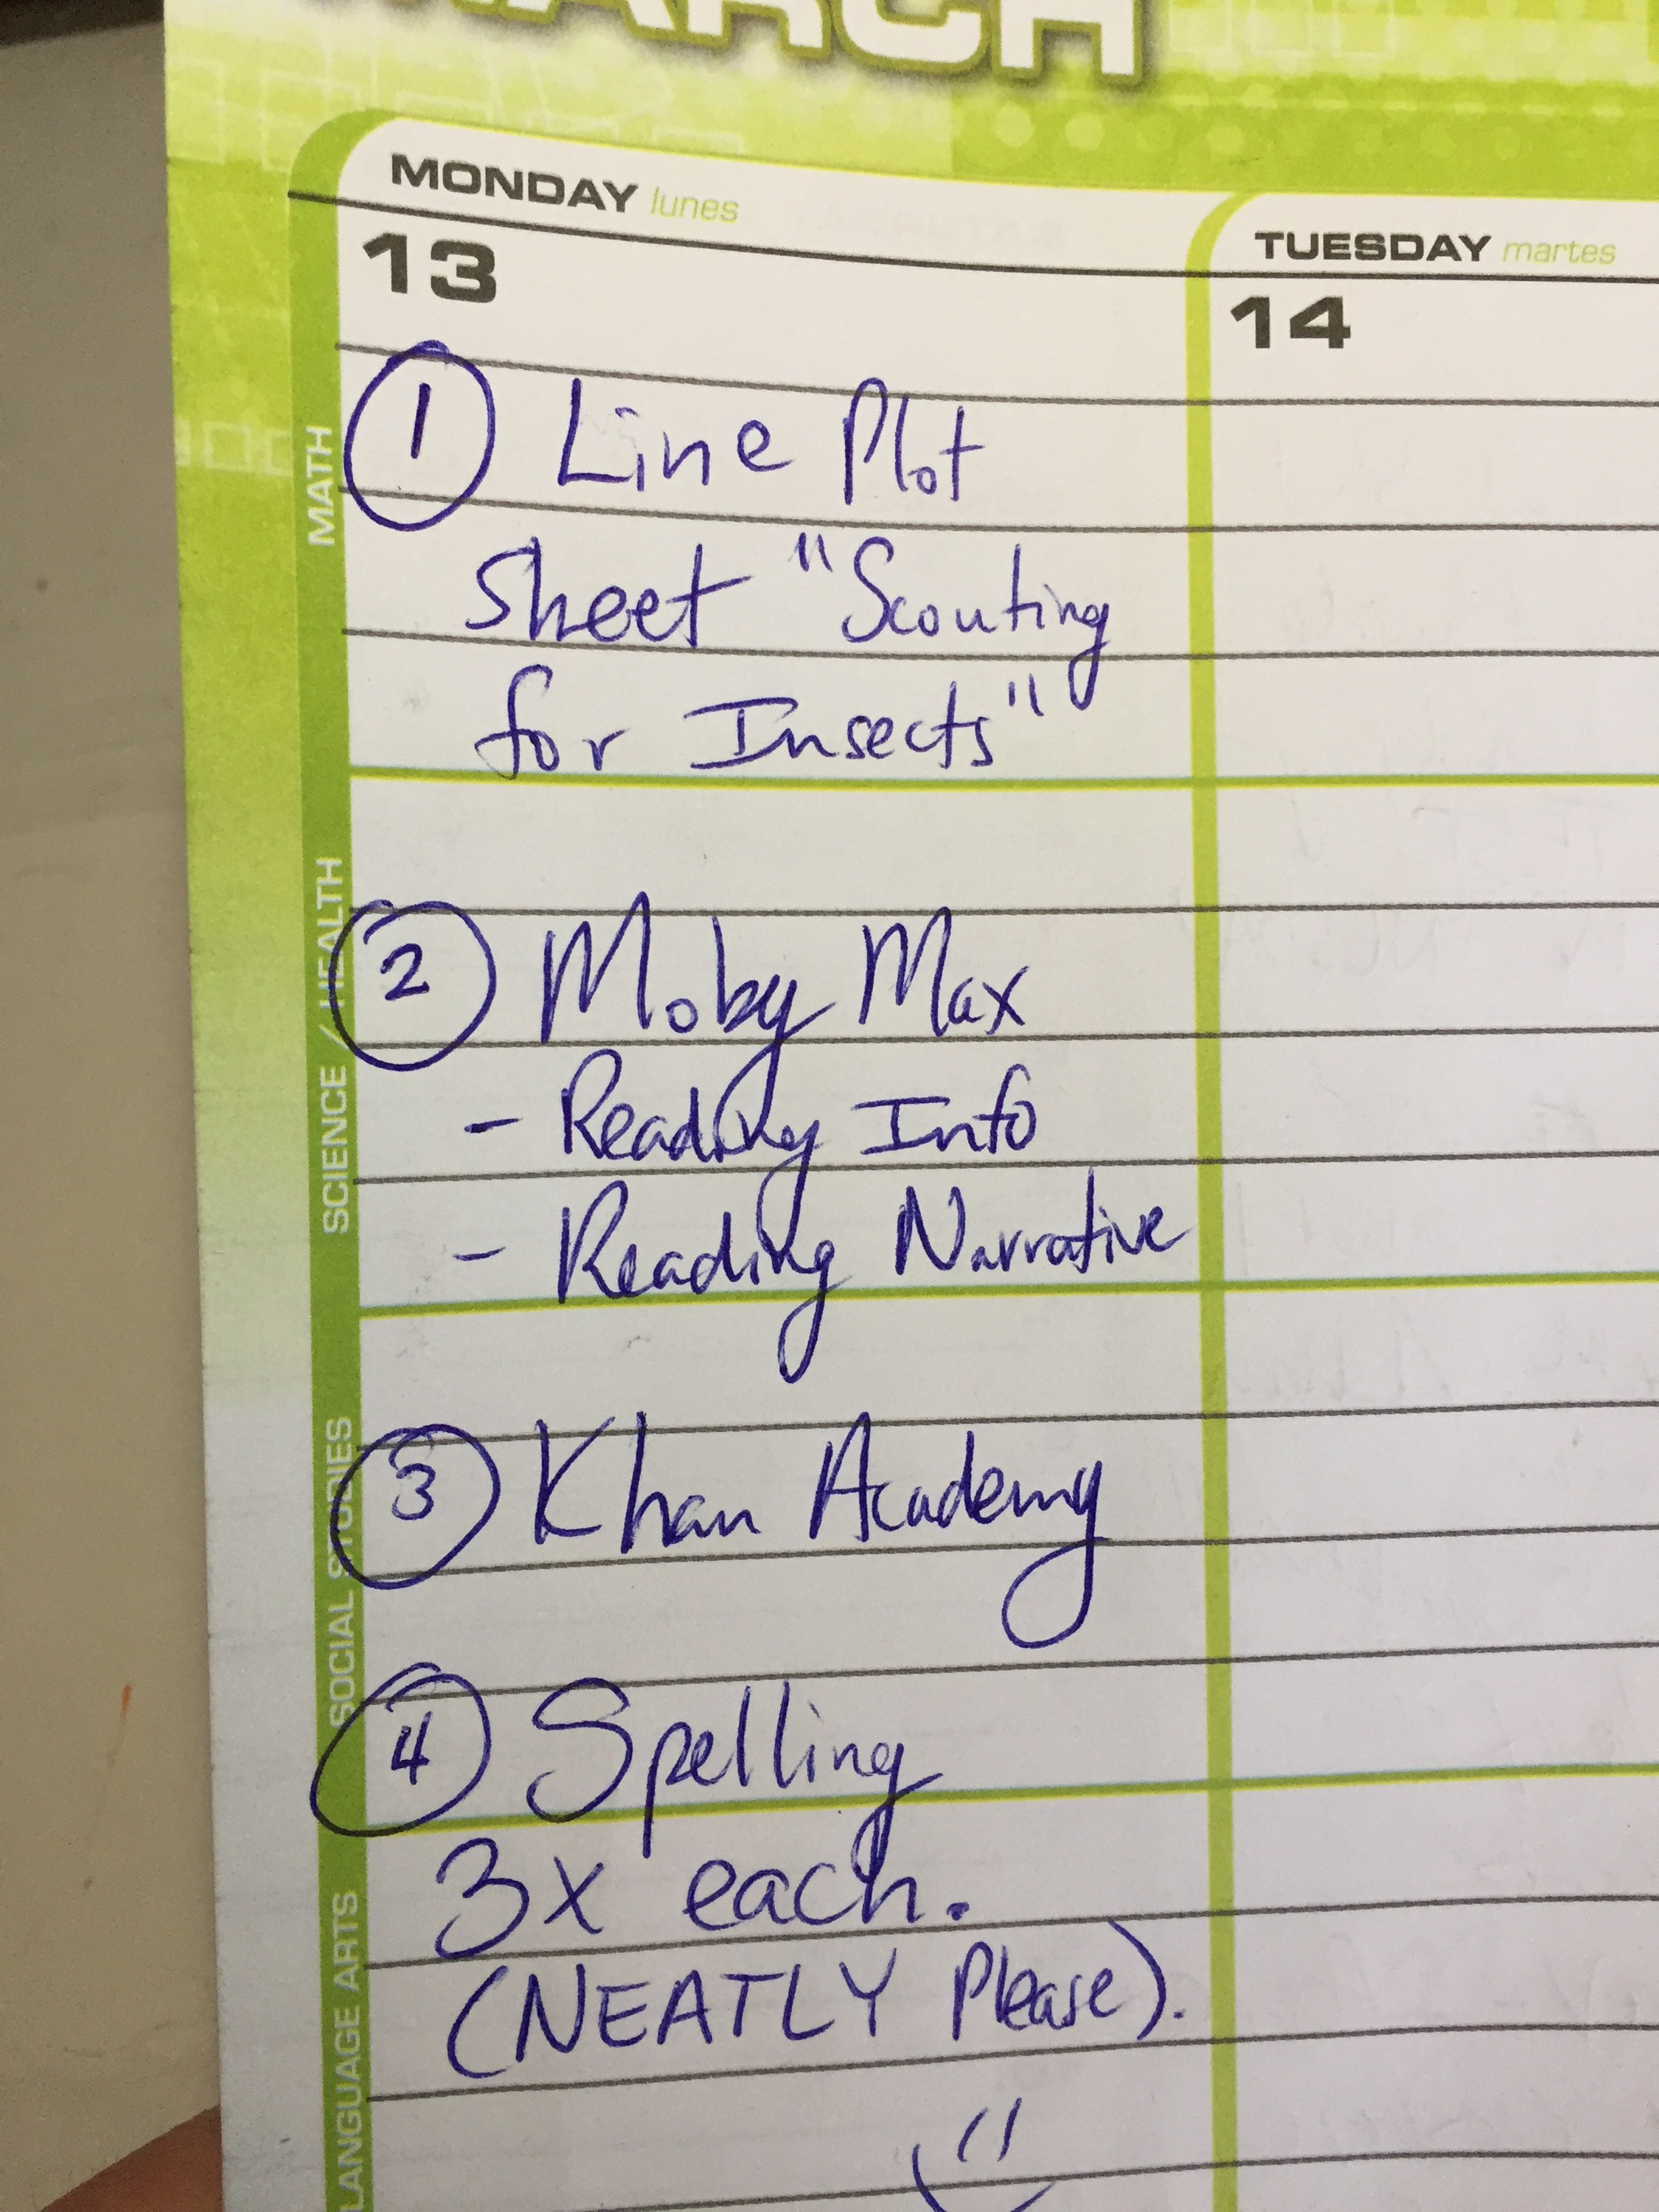 MARCH
MONDAY lunes
13
TUESDAY martes
14
MATH
① Line Plot
Sheet "Scouting
for Insects"
SCIENCE / HEALTH
② Moby Max
- Reading Info
- Reading Narrative
SOCIAL STUDIES
③ Khan Academy
④ Spelling
LANGUAGE ARTS
3x each.
(NEATLY Please).